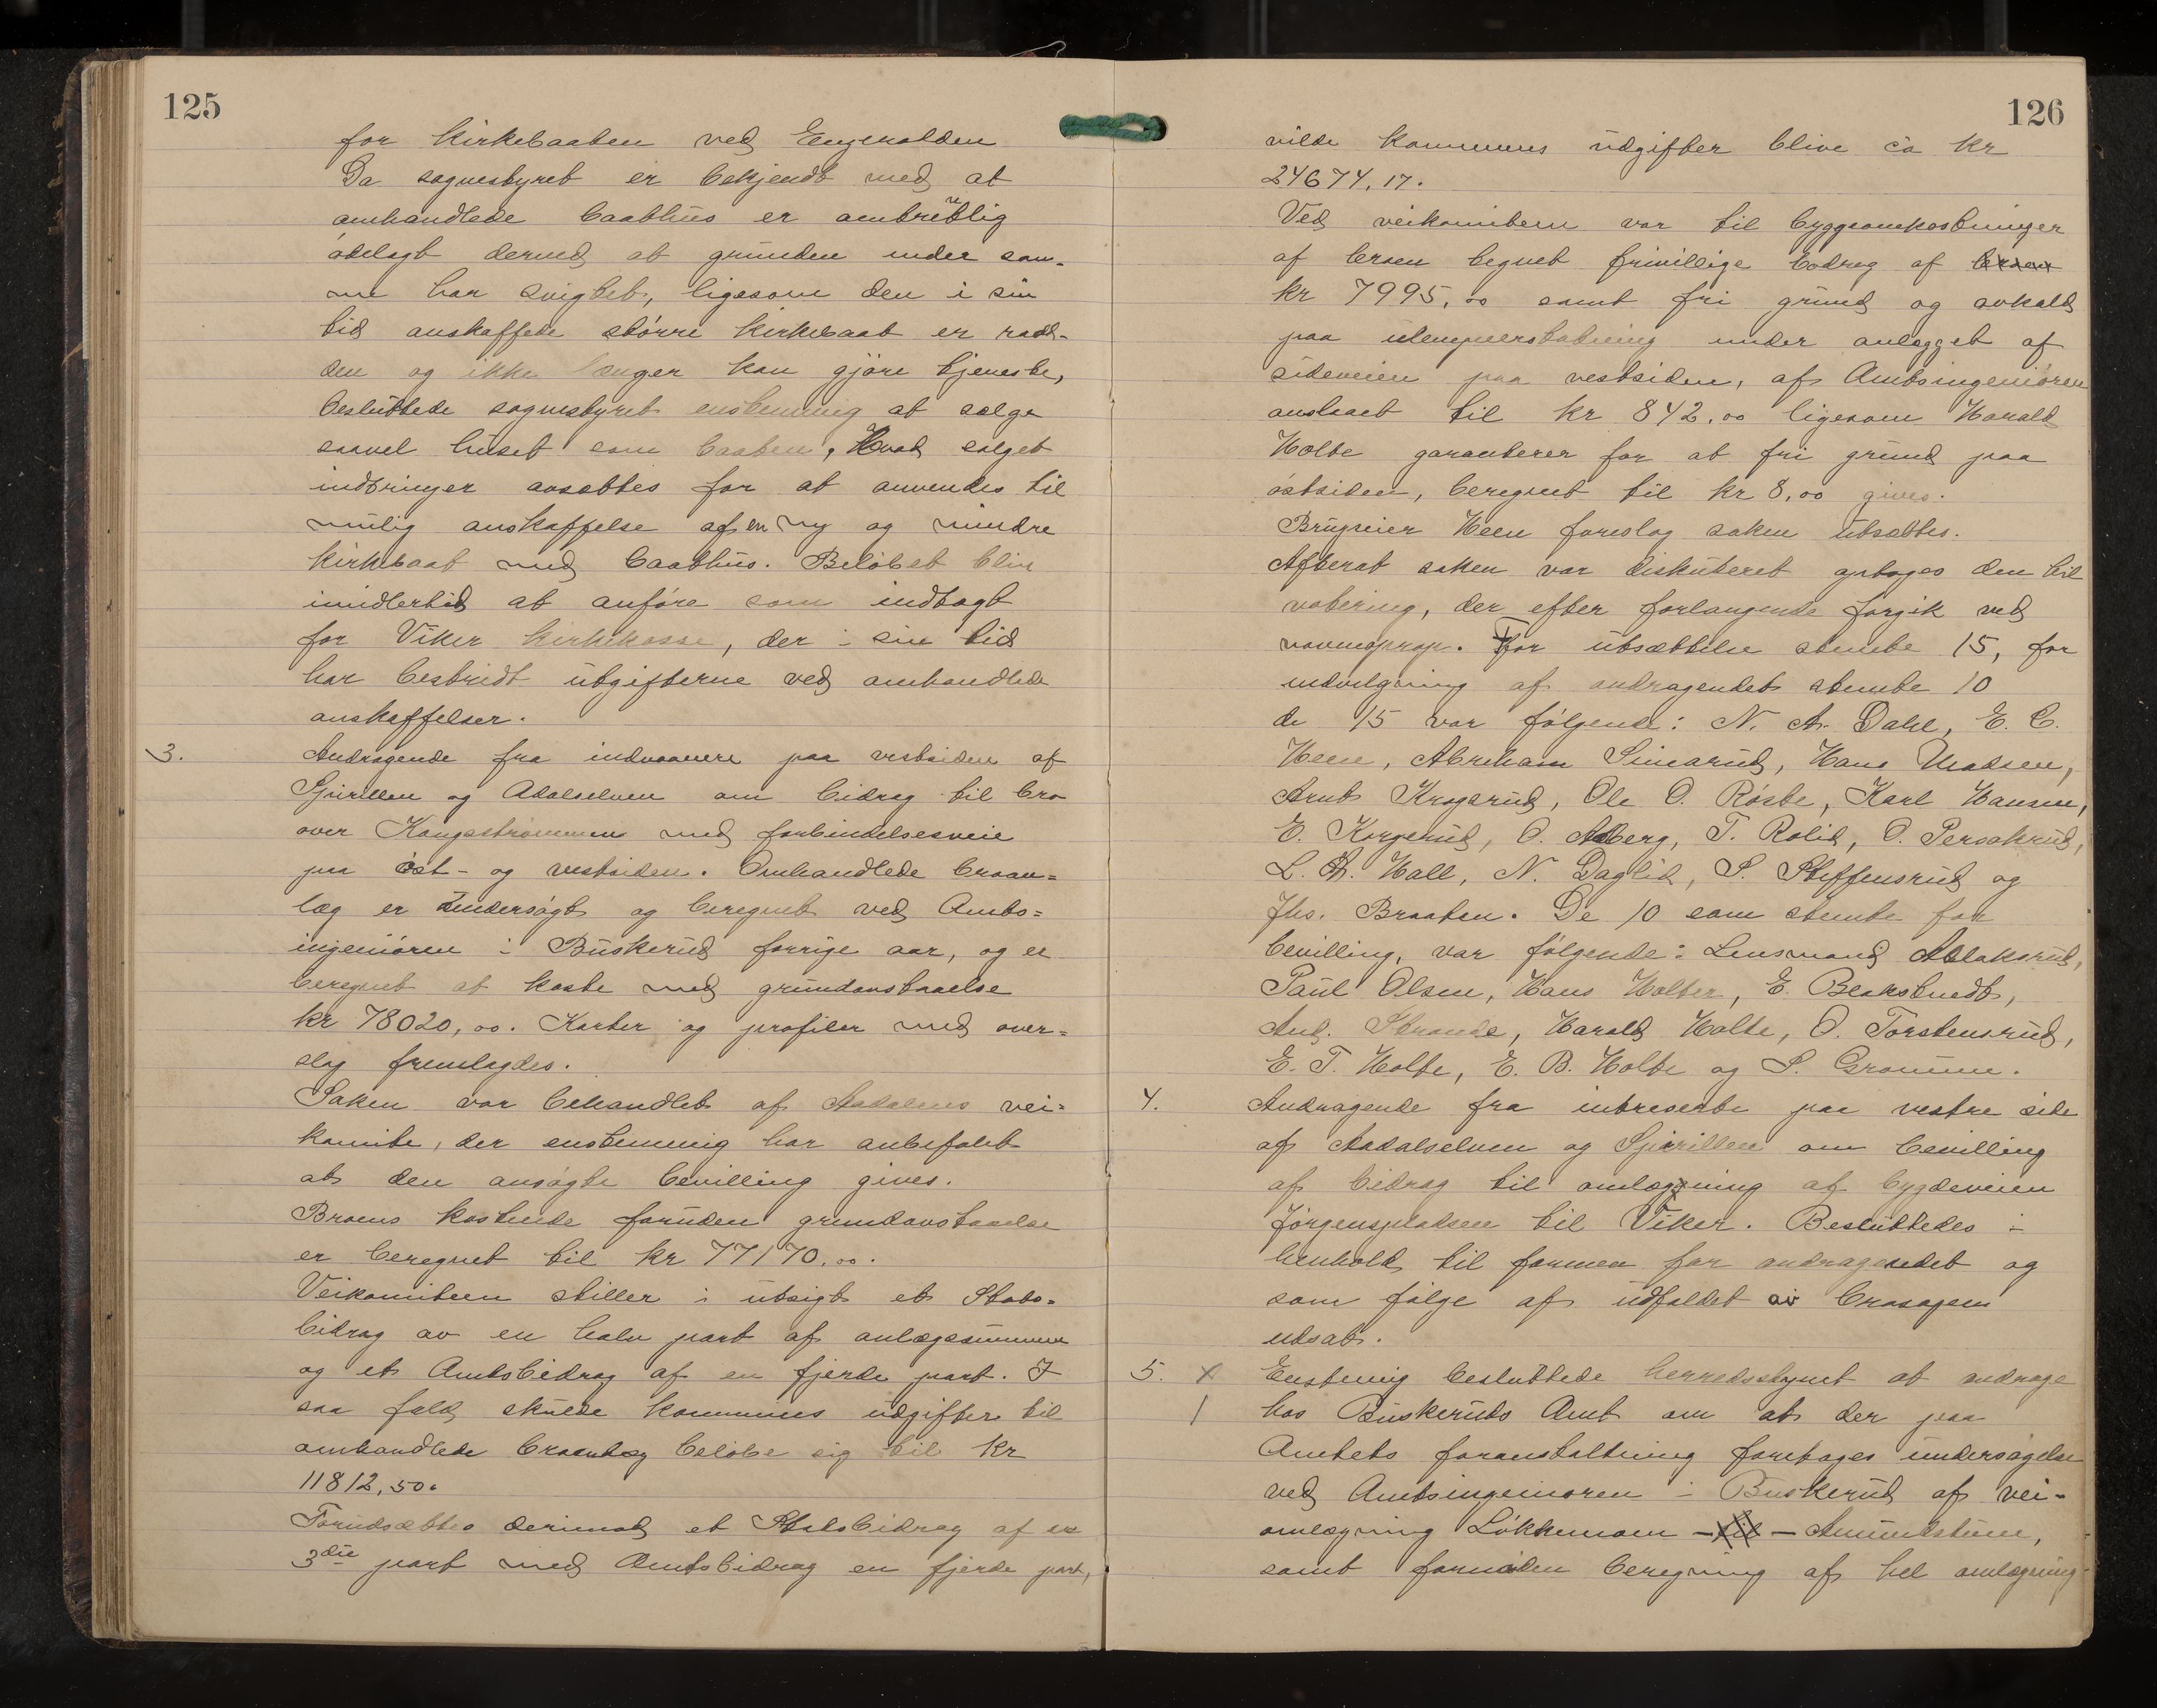 125
for kirkebaaten ved Engnolden
Da sognestyret er bekjendt med at
omhandlede baathus er omtrentlig
ødelagt derved at grunden under sam-
me har svigtet, ligesom den i sin
tid anskaffede større kirkebaat er raad-
den og ikke længer kan gjøre tjeneste,
besluttede sognestyret enstemmig at sælge
saavel huset som baaten, Hvad salget
indbringer avsættes for at anvendes til
mulig anskaffelse af en ny og mindre
kirkebaat med baathus. Beløbet bliv
imidlertid at anføre som indtægt
for Viker kirkekasse, der i sin tid
har bestridt utgifterne ved omhandlede
anskaffelser.
3. Andragende fra indvaanere paa vestsiden af
Spirillen og Adalselven om bidrag til bro
over Kongsstrømmen med forbindelsesveie
paa øst- og vestsiden. Omhandlede broan-
læg er undersøgt og beregnet ved Amts-
ingeniøren i Buskerud forrige aar, og er
beregnet at koste med grundavstaaelse
kr 78020,00. Karter og profiler med over-
slag fremlagdes.
Saken var behandlet af Aadalens vei-
komite, der enstemmig har anbefalet
at den ansøgte bevilling gives.
Broens kostende foruden grundavstaaelse
er beregnet til kr 77170.00.
Veikomiteen stiller i utsigt et Stats-
bidrag av en halv part af anlægssummen
og et Amtsbidrag af en fjerde part. I
saa fald skulde kommunes udgifter til
omhandlede broanlæg beløbe sig til kr
11812,50.
Forudsættes derimod et Statsbidrag af en
3die part med Amtsbidrag en fjerde part,
126
vilde kommunes udgifter blive ca kr
24674,17.
Ved veikomiteen var til byggeomkostninger
af broen tegnet frivillige bidrag af broen
kr 7995,00 samt fri grund og avkald
paa ulempeerstatning under anlægget af
sideveien paa vestsiden, af Amtsingeniøren
anslaaet til kr 842.00 ligesom Harald
Holte garanterer for at fri grund paa
østsiden, beregnet til kr 8,00 gives.
Brugseier Heen foreslog saken utsættes.
Efterat saken var diskuteret optoges den til
votering, der efter forlangende forgik ved
navneoprop. For utsættelse stemte 15, for
indvilgning af andragendet stemte 10
de 15 var følgende: N. A. Dahl, E. C.
Heen, Abraham Simarud, Hans Madsen,
Arnt Krogsrud, Ole O. Røste, Karl Hansen,
E. Korgerud, O. Aaberg, T. Rolid, O. Persakrud,
L. Th. Hall, N. Daglid, S. Steffensrud og
Jhs. Braaten. De 10 som stemte for
bevilling, var følgende: Lensmand Aslaksrud,
Paul Olsen, Hans Holter, E. Bearstuedt,
And. Strande, Harald Holte, O. Torstensrud,
E. T. Holte, E. B. Holte og S. Gromme.
4. Andragende fra intreserte paa vestre side
af Aadalselven og Spirillen om bevilling
af bidrag til omlægning af bygdeveien
Jørgenspladsen til Viker. Besluttedes i
henhold til formen for andragendet og
som følge af udfaldet av brosagen
udsat.
5. x Enstemig besluttede herredsstyret at andrage
1 hos Buskeruds Amt om at der paa
Amtets foranstaltning foretages undersøgelse
ved Amtsingeniøren i Buskerud af vei-
omlægning Løkkemoen – til – Amundstuen,
samt foruden beregning af hel omlægning